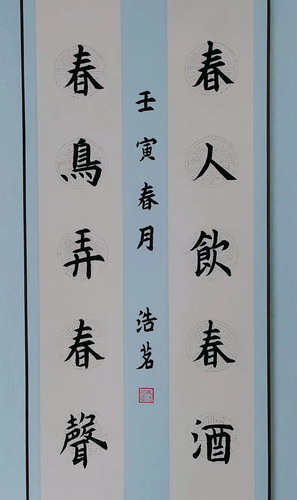 春人飲春酒
春鳥弄春聲
壬寅春月 浩茗